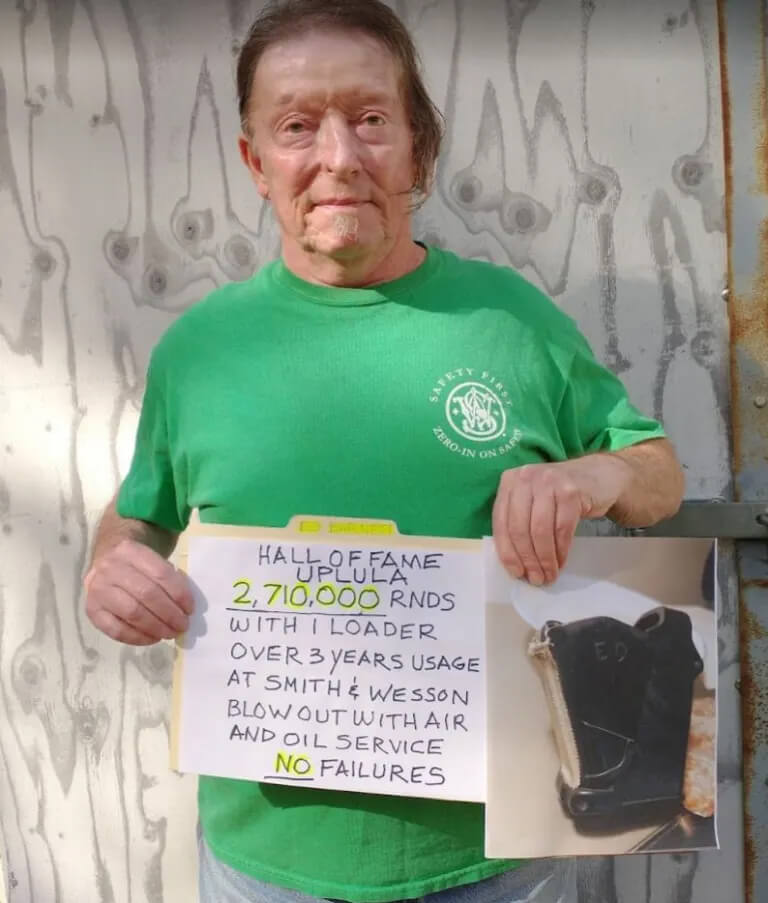 SAFETY FIRST
ZERO-IN ON SAFETY
HALL OF FAME
UPLULA
2,710,000 RNDS
WITH 1 LOADER
OVER 3 YEARS USAGE
AT SMITH & WESSON
BLOW OUT WITH AIR
AND OIL SERVICE
NO FAILURES
ED